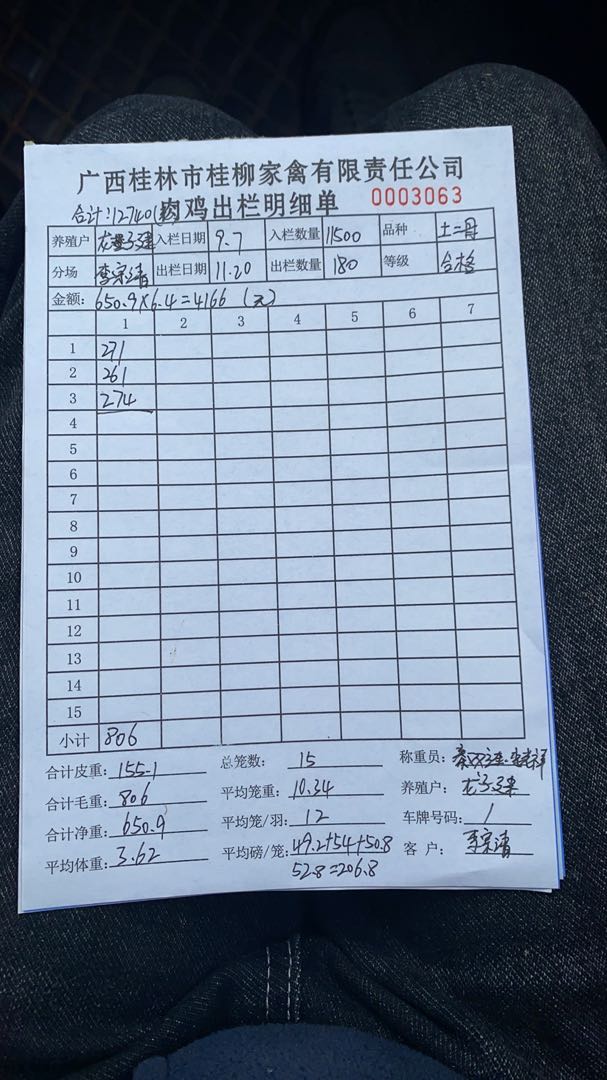 广西桂林市桂柳家禽有限责任公司
肉鸡出栏明细单 0003063
合计:12740
养殖户 入栏日期 9.7 入栏数量 11500 品种 土二丹
分场 李宗清 出栏日期 11.20 出栏数量 180 等级 合格
金额: 650.9×6.4=4166 (元)
1 2 3 4 5 6 7
1 271
2 261
3 274
4
5
6
7
8
9
10
11
12
13
14
15
小计 806
合计皮重: 155.1 总笼数: 15 称重员:
合计毛重: 806 平均笼重: 10.34 养殖户:
合计净重: 650.9 平均笼/羽: 12 车牌号码: /
平均体重: 3.62 平均磅/笼: 49.2+54+50.8 客 户: 李宗清
52.8=206.8